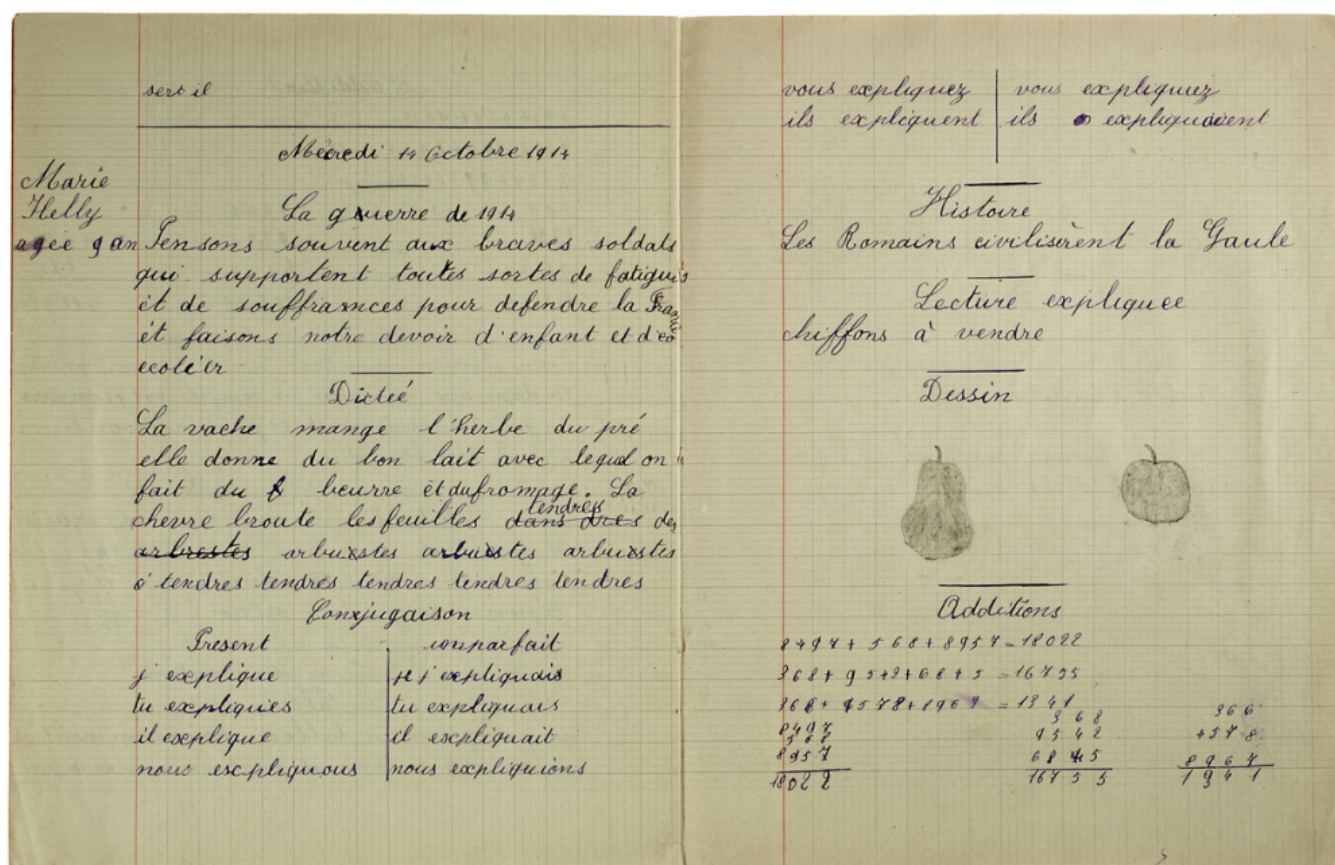 sert il
Mécredi 14 Octobre 1914
Marie
Helly
agée 9 an
La guerre de 1914
Pensons souvent aux braves soldats
qui supportent toutes sortes de fatigues
et de souffrances pour defendre la France
et faisons notre devoir d'enfant et d'éc
ecolier
Dicteé
La vache mange l'herbe du pré
elle donne du bon lait avec lequel on
fait du beurre et du fromage. La
chevre broute les feuilles tendres des
arbustes arbustes arbustes
tendres tendres tendres tendres tendres
Conjugaison
Present imparfait
j'explique j'expliquais
tu expliques tu expliquais
il explique il expliquait
nous expliquons nous expliquions
vous expliquez vous expliquiez
ils expliquent ils expliquaient
Histoire
Les Romains civilisèrent la Gaule
Lecture expliquee
chiffons à vendre
Dessin
Additions
8497 + 568 + 8957 = 18022
368 + 9542 + 68 + 5 = 16755
368 + 4578 + 1967 = 1341
8497 368 366
568 9542 4578
8957 6845 8967
18022 16755 1341